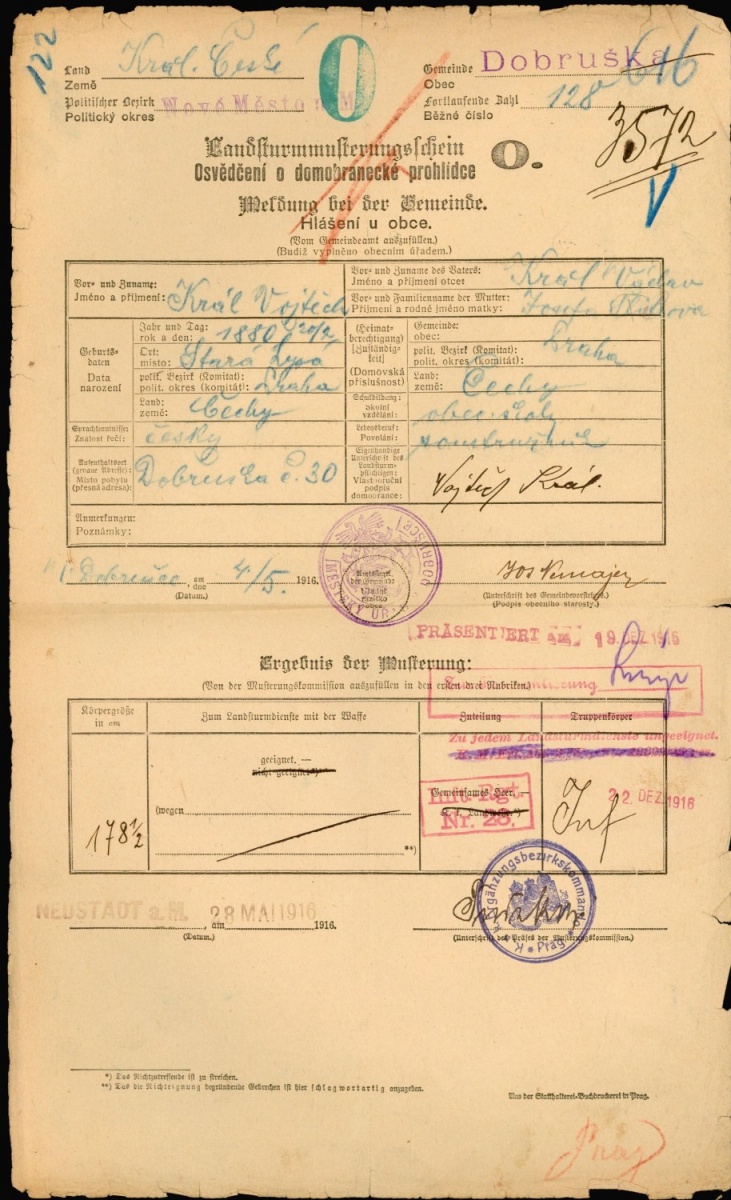 122
Land Král. České
Země
Gemeinde Dobruška 616
Obec
Politischer Bezirk Nové Město n. M.
Politický okres
Fortlaufende Zahl 128
Běžné číslo
O
3572
Landsturmmusterungsschein O.
Osvědčení o domobranecké prohlídce
Meldung bei der Gemeinde.
Hlášení u obce.
(Vom Gemeindeamt auszufüllen.)
(Budiž vyplněno obecním úřadem.)
Vor- und Zuname:
Jméno a příjmení: Král Vojtěch
Vor- und Zuname des Vaters:
Jméno a příjmení otce: Král Václav
Vor- und Familienname der Mutter:
Příjmení a rodné jméno matky: Josefa
Geburts-
daten
Data
narození
Jahr und Tag:
rok a den: 1880 20/2
Ort:
místo: Stará Lysá
polit. Bezirk (Komitat):
polit. okres (komitát): Praha
Land:
země: Čechy
(Heimat-
berechtigung)
(Zuständig-
keit)
(Domovská
příslušnost)
Gemeinde:
obec: Praha
polit. Bezirk (Komitat)
polit. okres (komitát):
Land:
země: Čechy
Sprachkenntnisse:
Znalost řečí: česky
Schulbildung:
školní
vzdělání: obec. škola
Lebensberuf:
Povolání:
Aufenthaltsort
(genaue Adresse):
Místo pobytu
(přesná adresa): Dobruška č. 30
Eigenhändige
Unterschrift des
Landsturm-
pflichtigen:
Vlastnoruční
podpis
domobrance: Vojtěch Král.
Anmerkungen:
Poznámky:
V Dobrušce am 4/5. 1916.
dne
(Datum.)
(Unterschrift des Gemeindevorstehers.)
(Podpis obecního starosty.)
PRÄSENTIERT am 19. DEZ. 1916
Ergebnis der Musterung:
(Von der Musterungskommission auszufüllen in den ersten drei Rubriken.)
Körpergröße
in cm
Zum Landsturmdienste mit der Waffe
Zuteilung
Truppenkörper
Zu jedem Landsturmdienste ungeeignet.
geeignet. —
nicht geeignet*)
(wegen
**)
178 1/2
Gemeinsames Heer. —
Inft. Rgt.
Nr. 28.
Inf
22. DEZ. 1916
NEUSTADT a. M. 28 MAI 1916
am 1916.
(Datum.)
K. u. k. Ergänzungsbezirkskommando Prag
(Unterschrift des Präses der Musterungskommission.)
*) Das Nichtzutreffende ist zu streichen.
**) Das die Nichteignung begründende Gebrechen ist hier schlagwortartig anzugeben.
Aus der Statthalterei-Buchdruckerei in Prag.
Prag